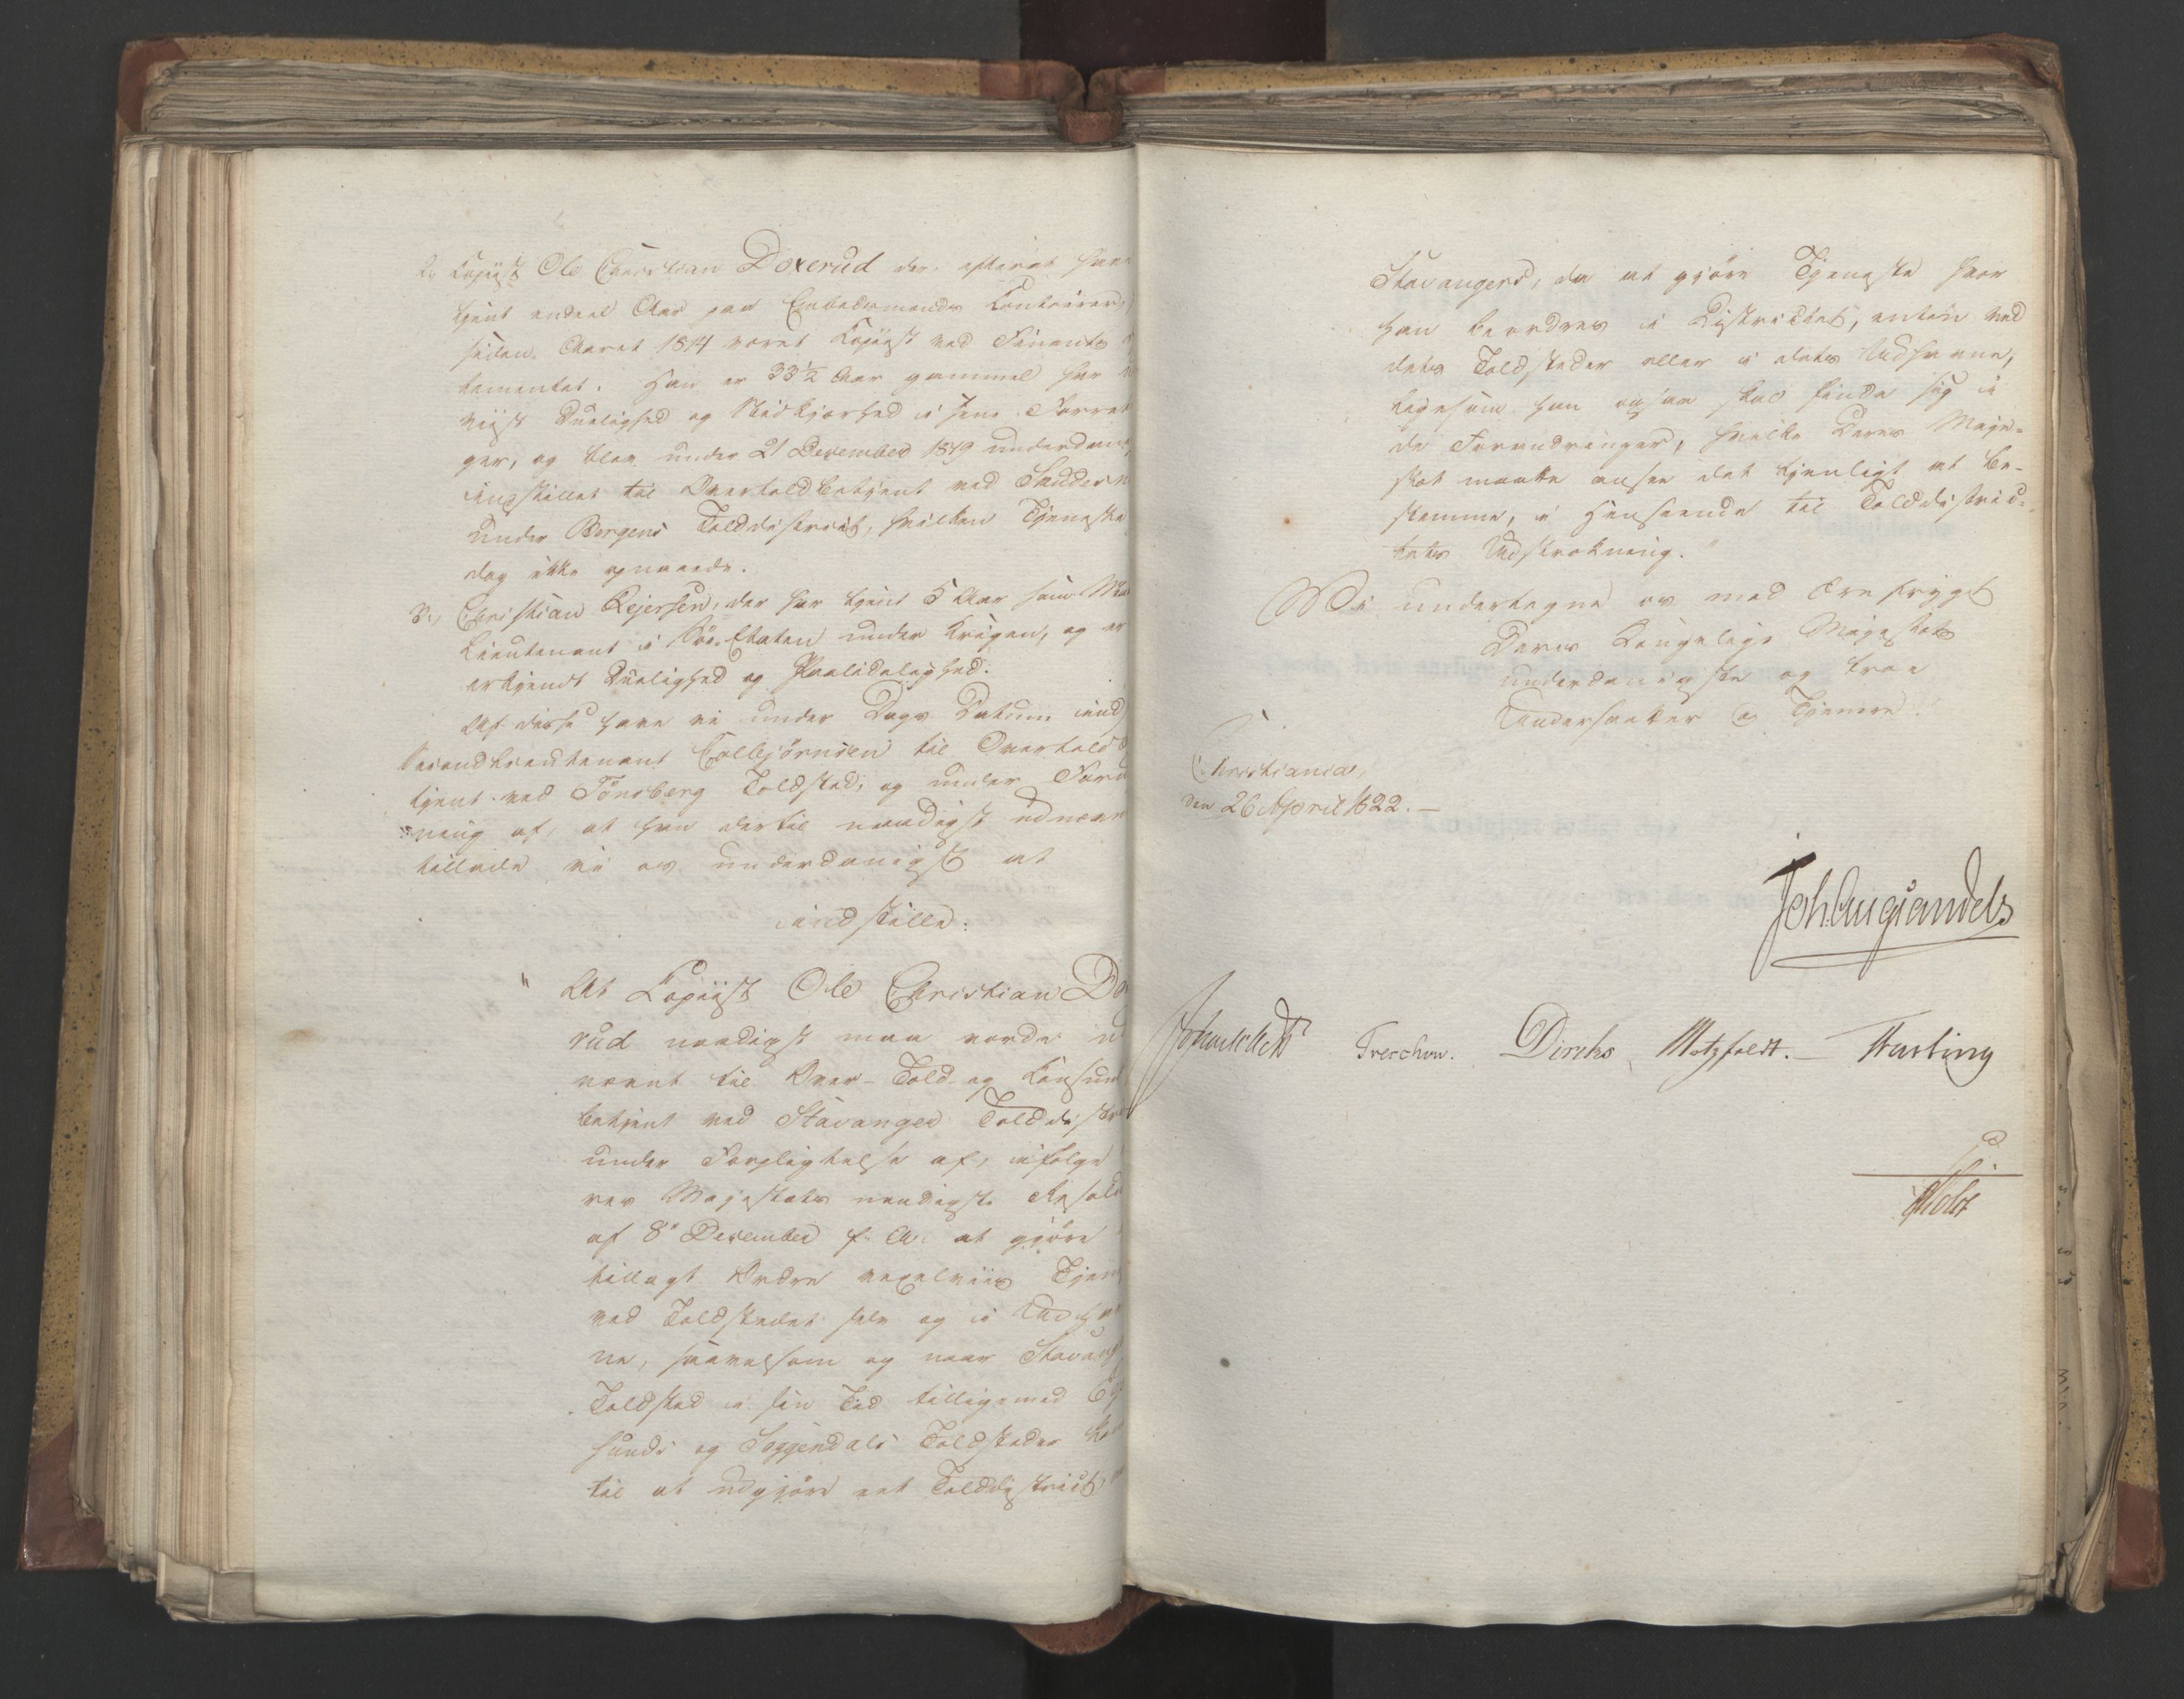 2. Copiist Ole Christian Doxerud der. efterat have
tjent endeel Aar paa Embedsmænds Contoirer,
siden Aaret 1814 været Copiist ved Finants
tementet. Han er 33½ Aar gammel har
viist Duelighed og Stadighed i sine Forret
ger, og blev under 21 December 1819 underdanig
indstillet til Overtoldbetjent ved
under Bergens Tolddistrict, hvilken Tjeneste
dog ikke opnaaede.
3., Christian Rejersen, der har tjent 5 Aar som
Lieutenant i Søe-Etaten under Krigen, og er
erkjendt Duelighed og Paalidelighed.
Af disse have vi under Dags Datum ind
Secondlieutenant Colbjörnsen til Overtold
tjent ved Tönsberg Toldsted, og under Foru
ning af, at han dertil naadigst udnævn
tillade vi os underdanigst at
indstille:
" At Copiist Ole Christian Do
rud naadigst maa vorde u
nævnt til Over-Told- og Consum
betjent ved Stavanger Tolddistr
under Forpligtelse af, ifølge
res Majestæts naadigste Resolu
af 8de December f. A. at gjöre
tillagt Ordre vexelviis Tjen
ved Toldstedet selv og i Udhav
ne, saavelsom og naar Stavang
Toldsted i sin Tid tilligemed Eg
sunds og Soggendals Toldsteder kom
til at udgjöre eet Tolddistrict
Stavangers, da at gjöre Tjeneste hvor
han beordres i Districtet, enten ved
dets Toldsteder eller i dets Udhavne,
ligesom han ogsaa skal finde sig i
de Forandringer, hvilke Deres Maje-
stæt maatte ansee det tjenligt at be-
stemme, i Henseende til Tolddistric-
tets Udstrækning."
Vi undertegne os med Ærefrygt
Deres Kongelige Majestæts
underdanigste og troe
Undersaatter og Tjenere.
Christiania,
den 26 April 1822.—
Joh. Aug. Sandels
Treschow. Diriks Motzfeldt.— Fasting
Holst